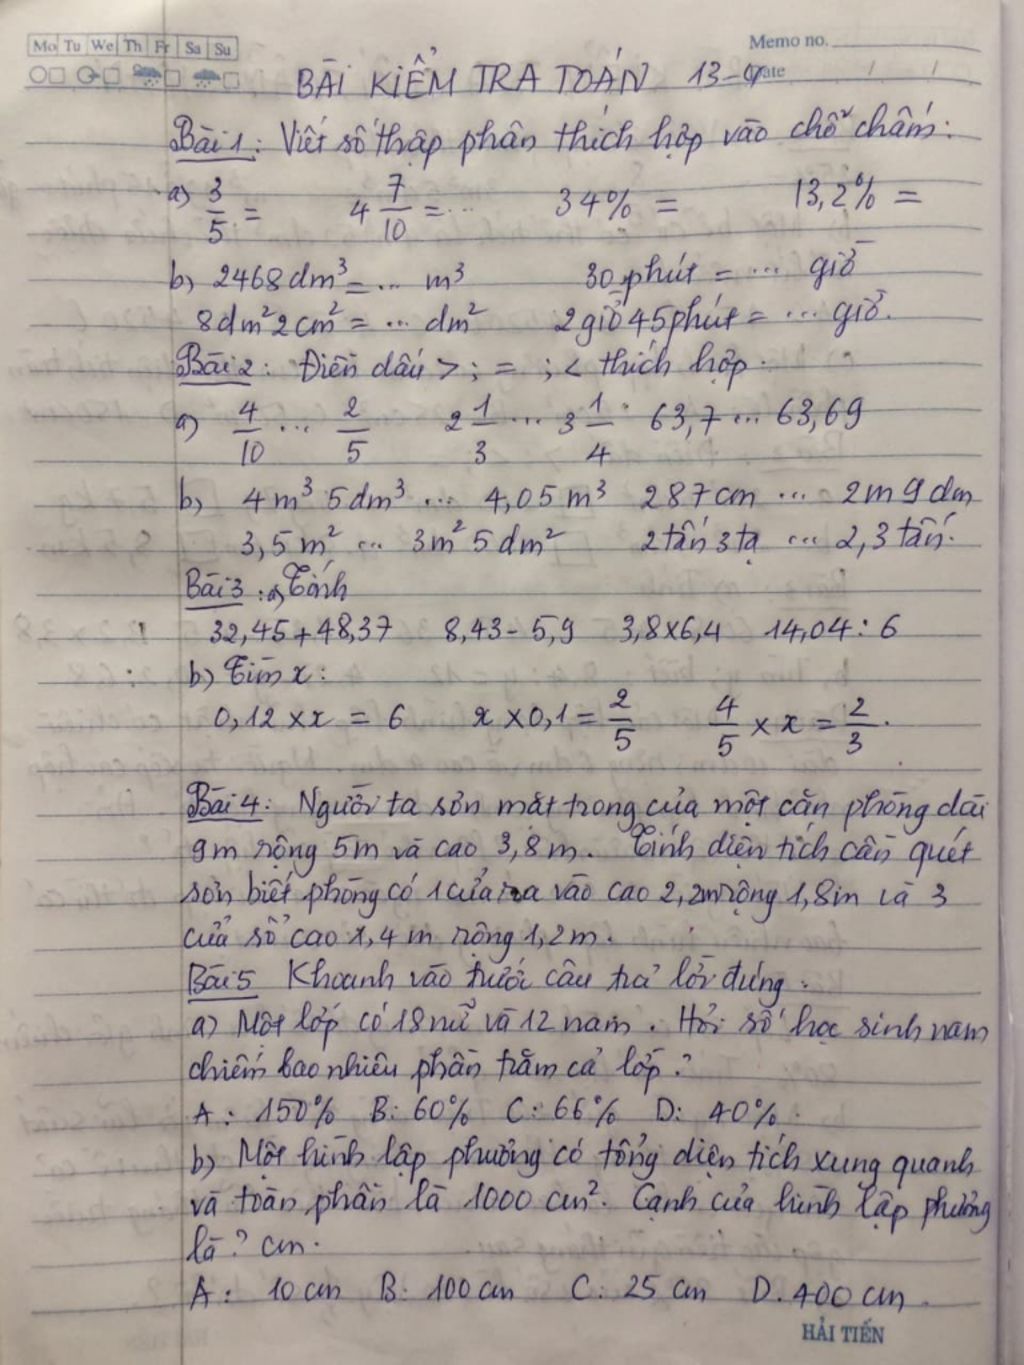 Mo Tu We Th Fr Sa Su
Memo no.
Date / /
BÀI KIỂM TRA TOÁN 13-
Bài 1: Viết số thập phân thích hợp vào chỗ chấm:
a) 3/5 = 4 7/10 = ... 34% = 13,2% =
b) 2468 dm³ = ... m³ 30 phút = ... giờ
8dm² 2cm² = ... dm² 2 giờ 45 phút = ... giờ.
Bài 2: Điền dấu > ; = ; < thích hợp.
a) 4/10 ... 2/5 2 1/3 ... 3 1/4 63,7 ... 63,69
b) 4m³ 5dm³ ... 4,05 m³ 287cm ... 2m 9 dm
3,5 m² ... 3m² 5 dm² 2 tấn 3 tạ ... 2,3 tấn.
Bài 3: a, Tính
32,45 + 48,37 8,43 - 5,9 3,8 x 6,4 14,04 : 6
b) Tìm x:
0,12 x x = 6 x x 0,1 = 2/5 4/5 x x = 2/3.
Bài 4: Người ta sơn mặt trong của một căn phòng dài
9m rộng 5m và cao 3,8m. Tính diện tích cần quét
sơn biết phòng có 1 cửa ra vào cao 2,2m rộng 1,8m và 3
cửa sổ cao 1,4 m rộng 1,2m.
Bài 5 Khoanh vào trước câu trả lời đúng.
a) Một lớp có 18 nữ và 12 nam. Hỏi số học sinh nam
chiếm bao nhiêu phần trăm cả lớp?
A: 150% B: 60% C: 66% D: 40%.
b) Một hình lập phương có tổng diện tích xung quanh
và toàn phần là 1000 cm². Cạnh của hình lập phương
là? cm.
A: 10 cm B: 100 cm C: 25 cm D. 400 cm.
HẢI TIẾN